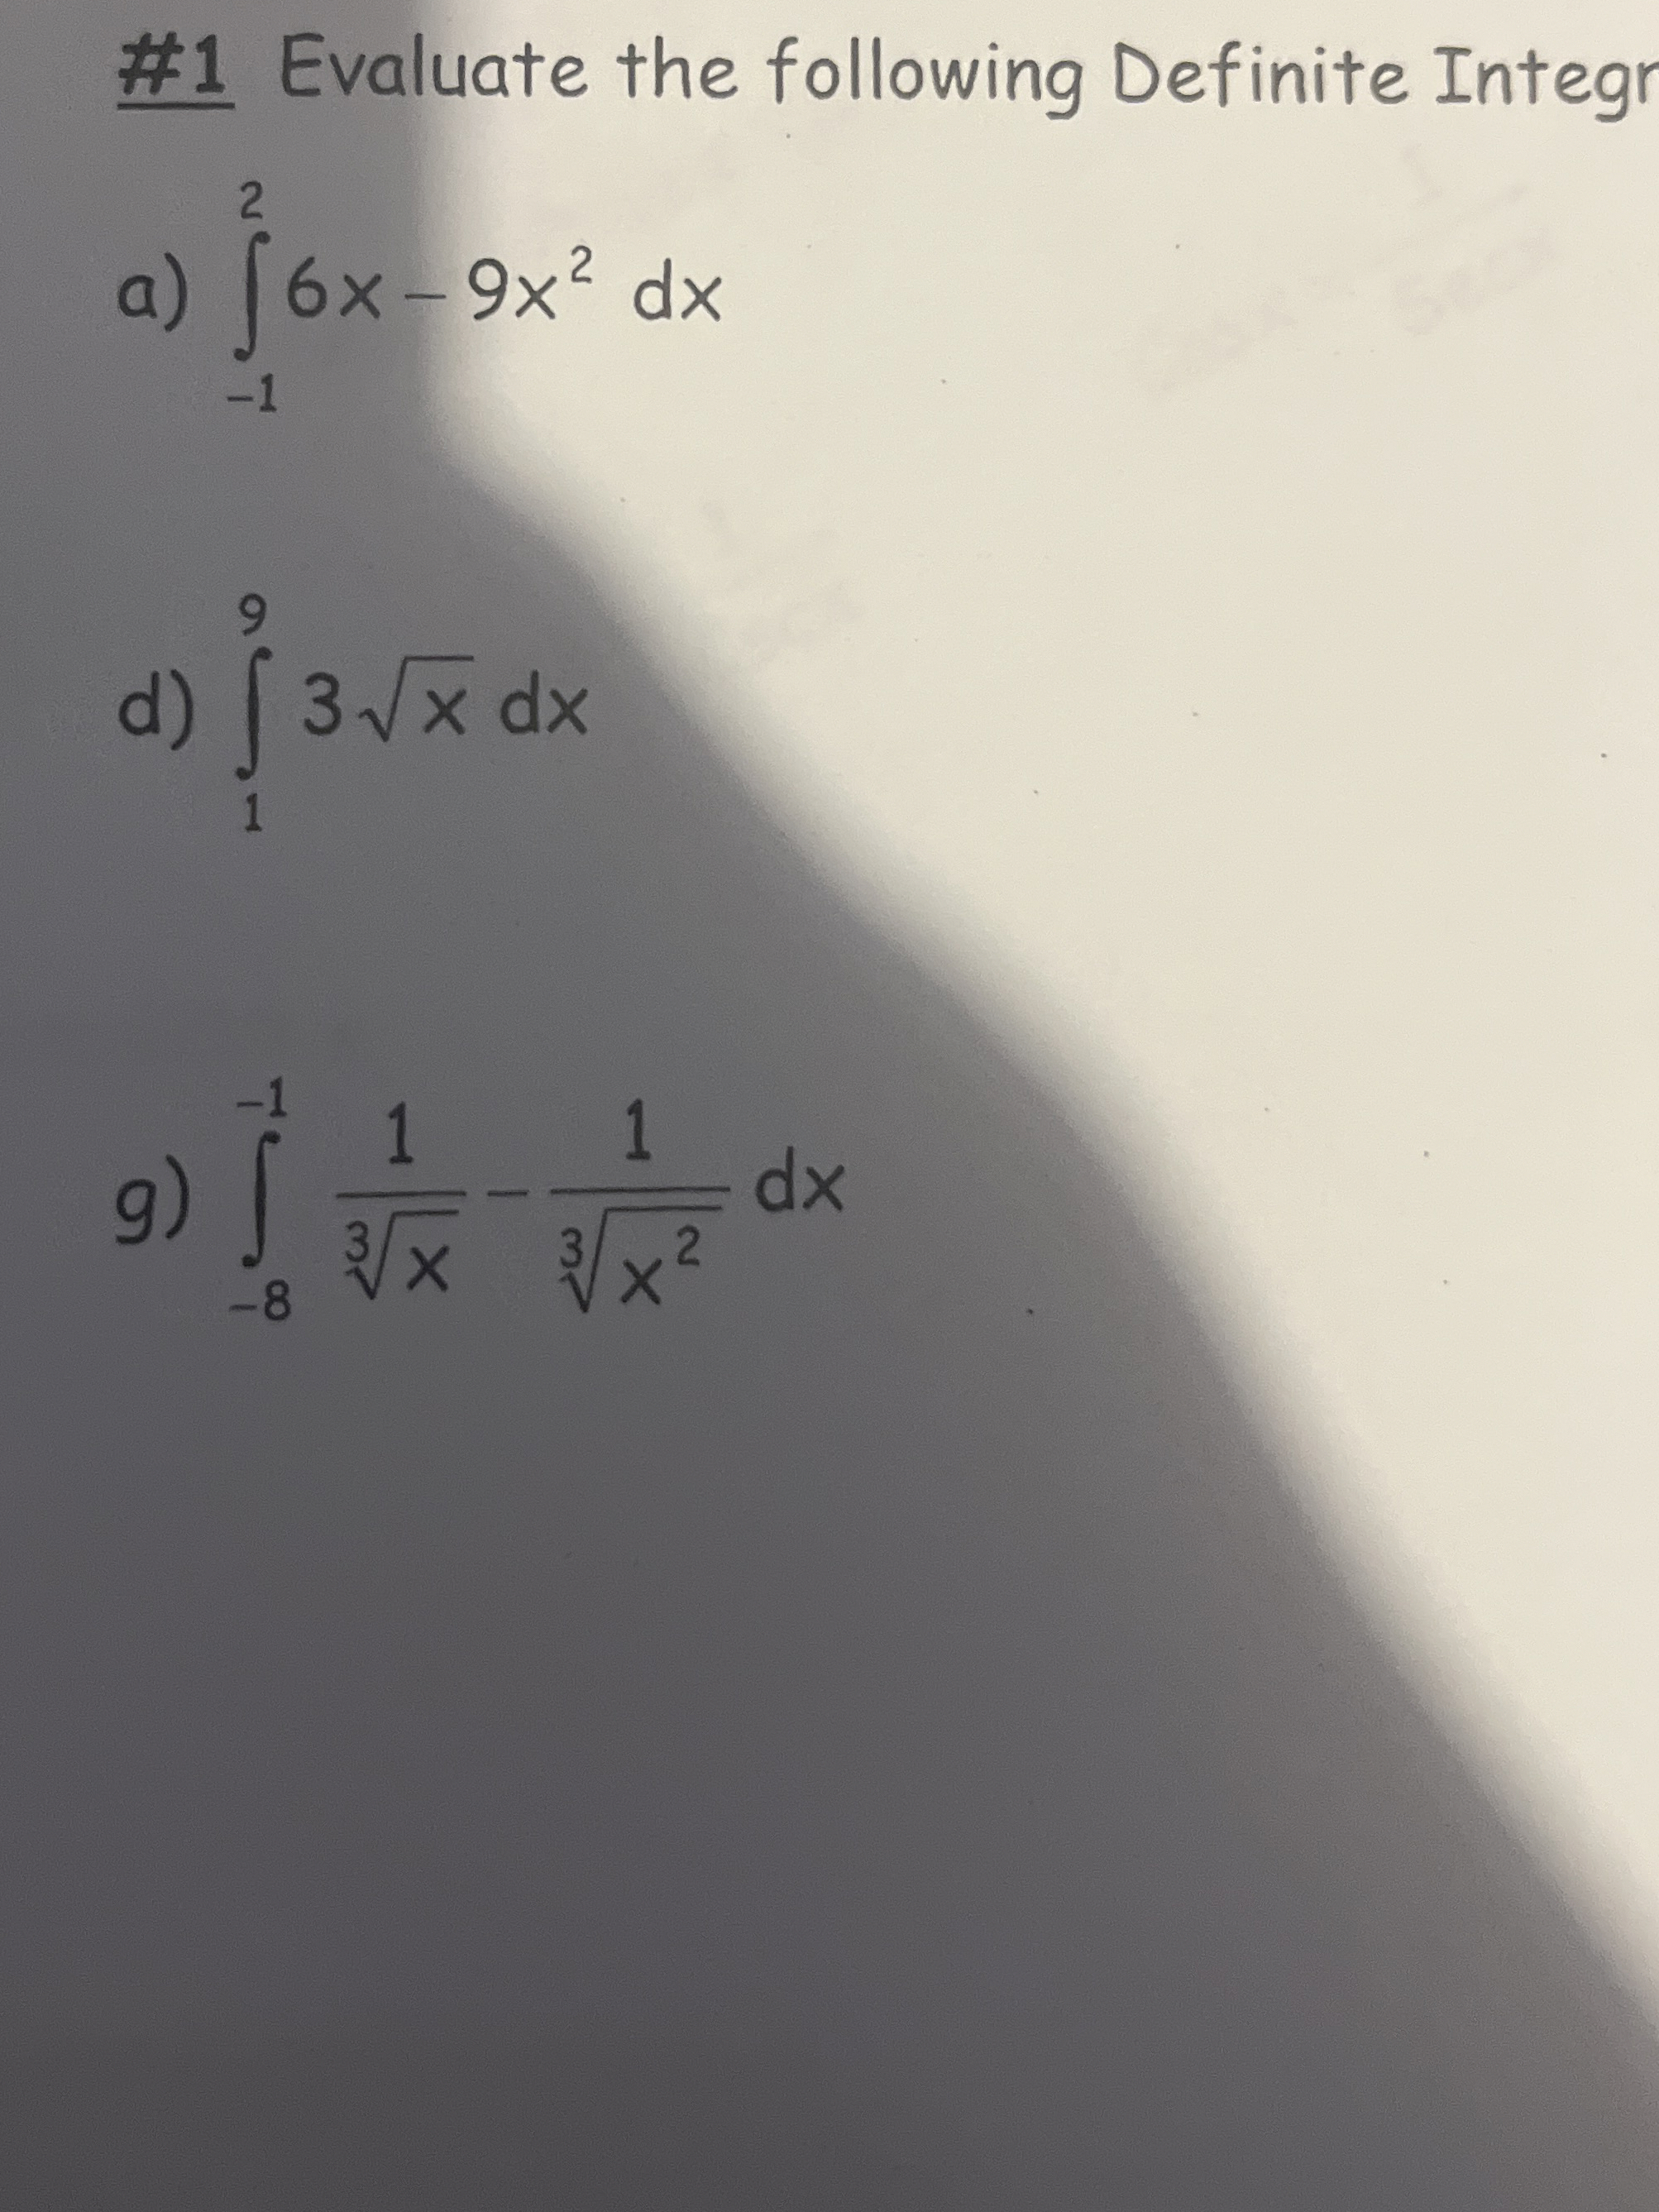 #1 Evaluate the following Definite Integr
a) ∫_{-1}^{2} 6x - 9x² dx
d) ∫_{1}^{9} 3√x dx
g) ∫_{-8}^{-1} 1/∛x - 1/∛x² dx